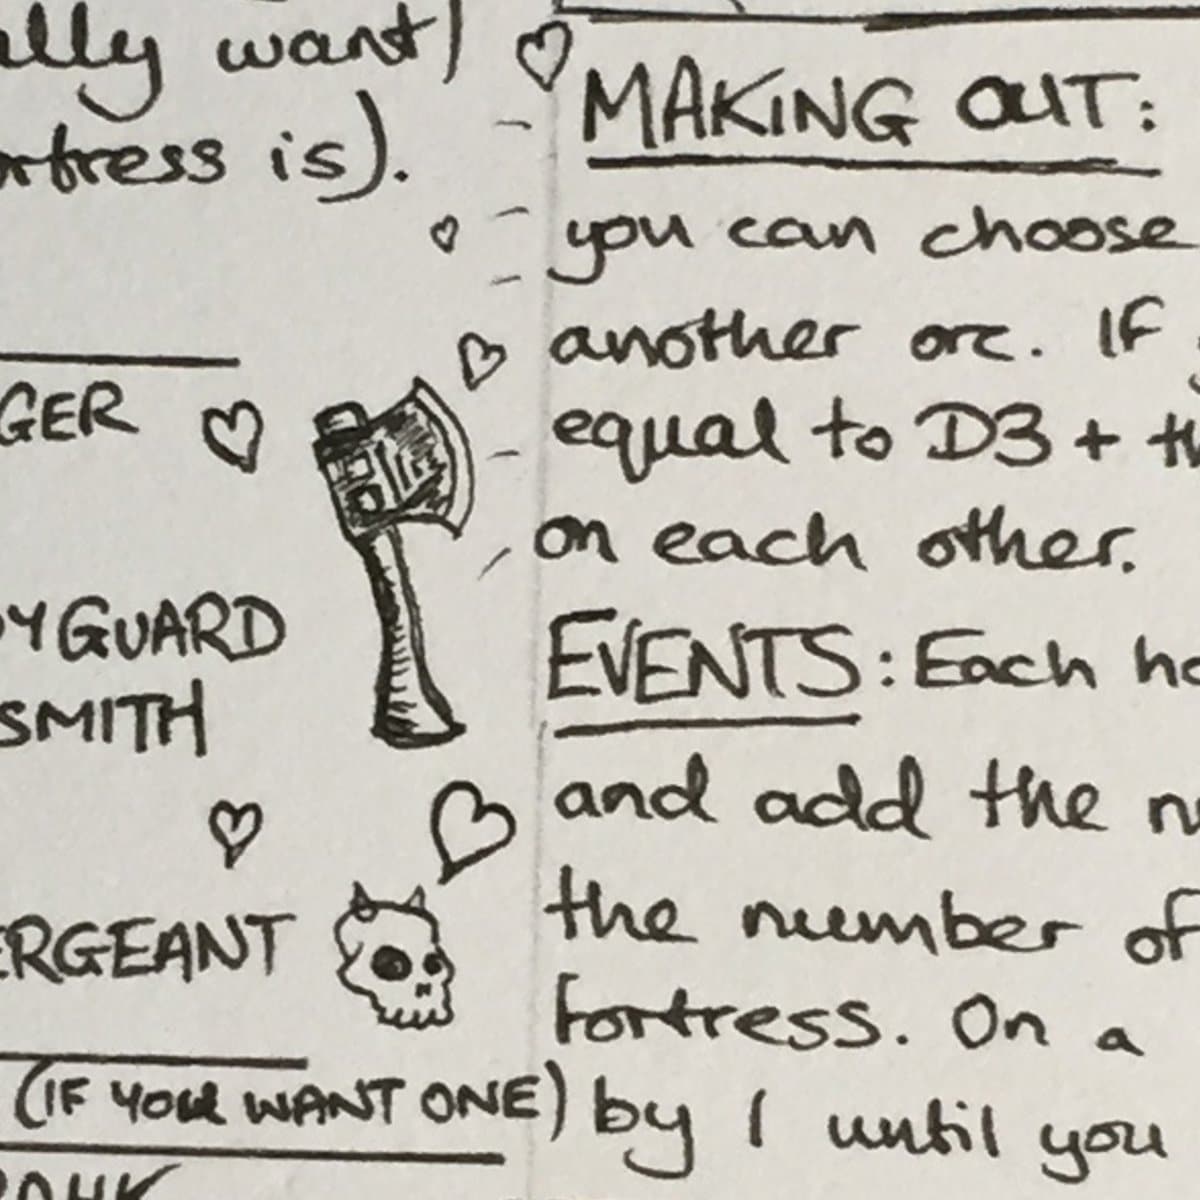 ally want)
ortress is).
GER
YGUARD
SMITH
ERGEANT
(IF YOU WANT ONE)
MAKING OUT:
you can choose
another orc. IF
equal to D3 + th
on each other.
EVENTS: Each ho
and add the nu
the number of
fortress. On a
by 1 until you